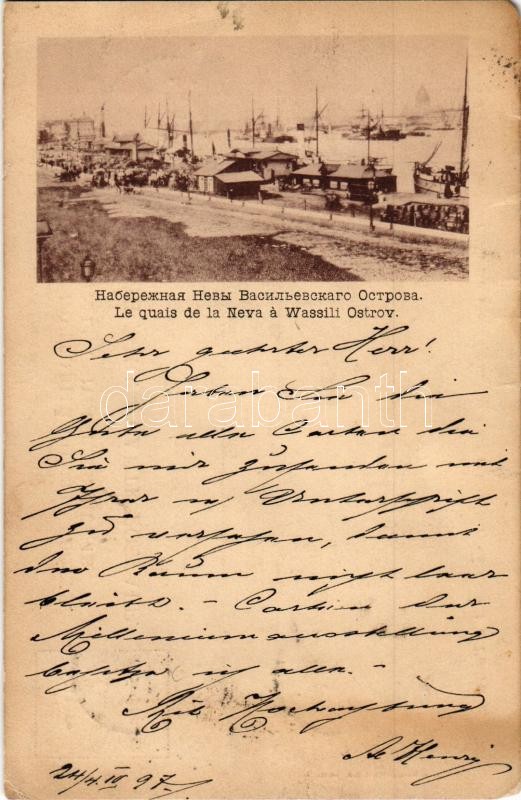 Набережная Невы Васильевскаго Острова.
Le quais de la Neva à Wassili Ostrov.
Sehr geehrter Herr!
Haben Sie die
Güte alle Carten die
Sie mir zusenden mit
Ihrer w Unterschrift
zu versehen, damit
der Raum nicht leer
bleibt. - Carten der
Milleniumausstellung
besitze ich alle. -
Mit Hochachtung
24/4. 97.
darabanth